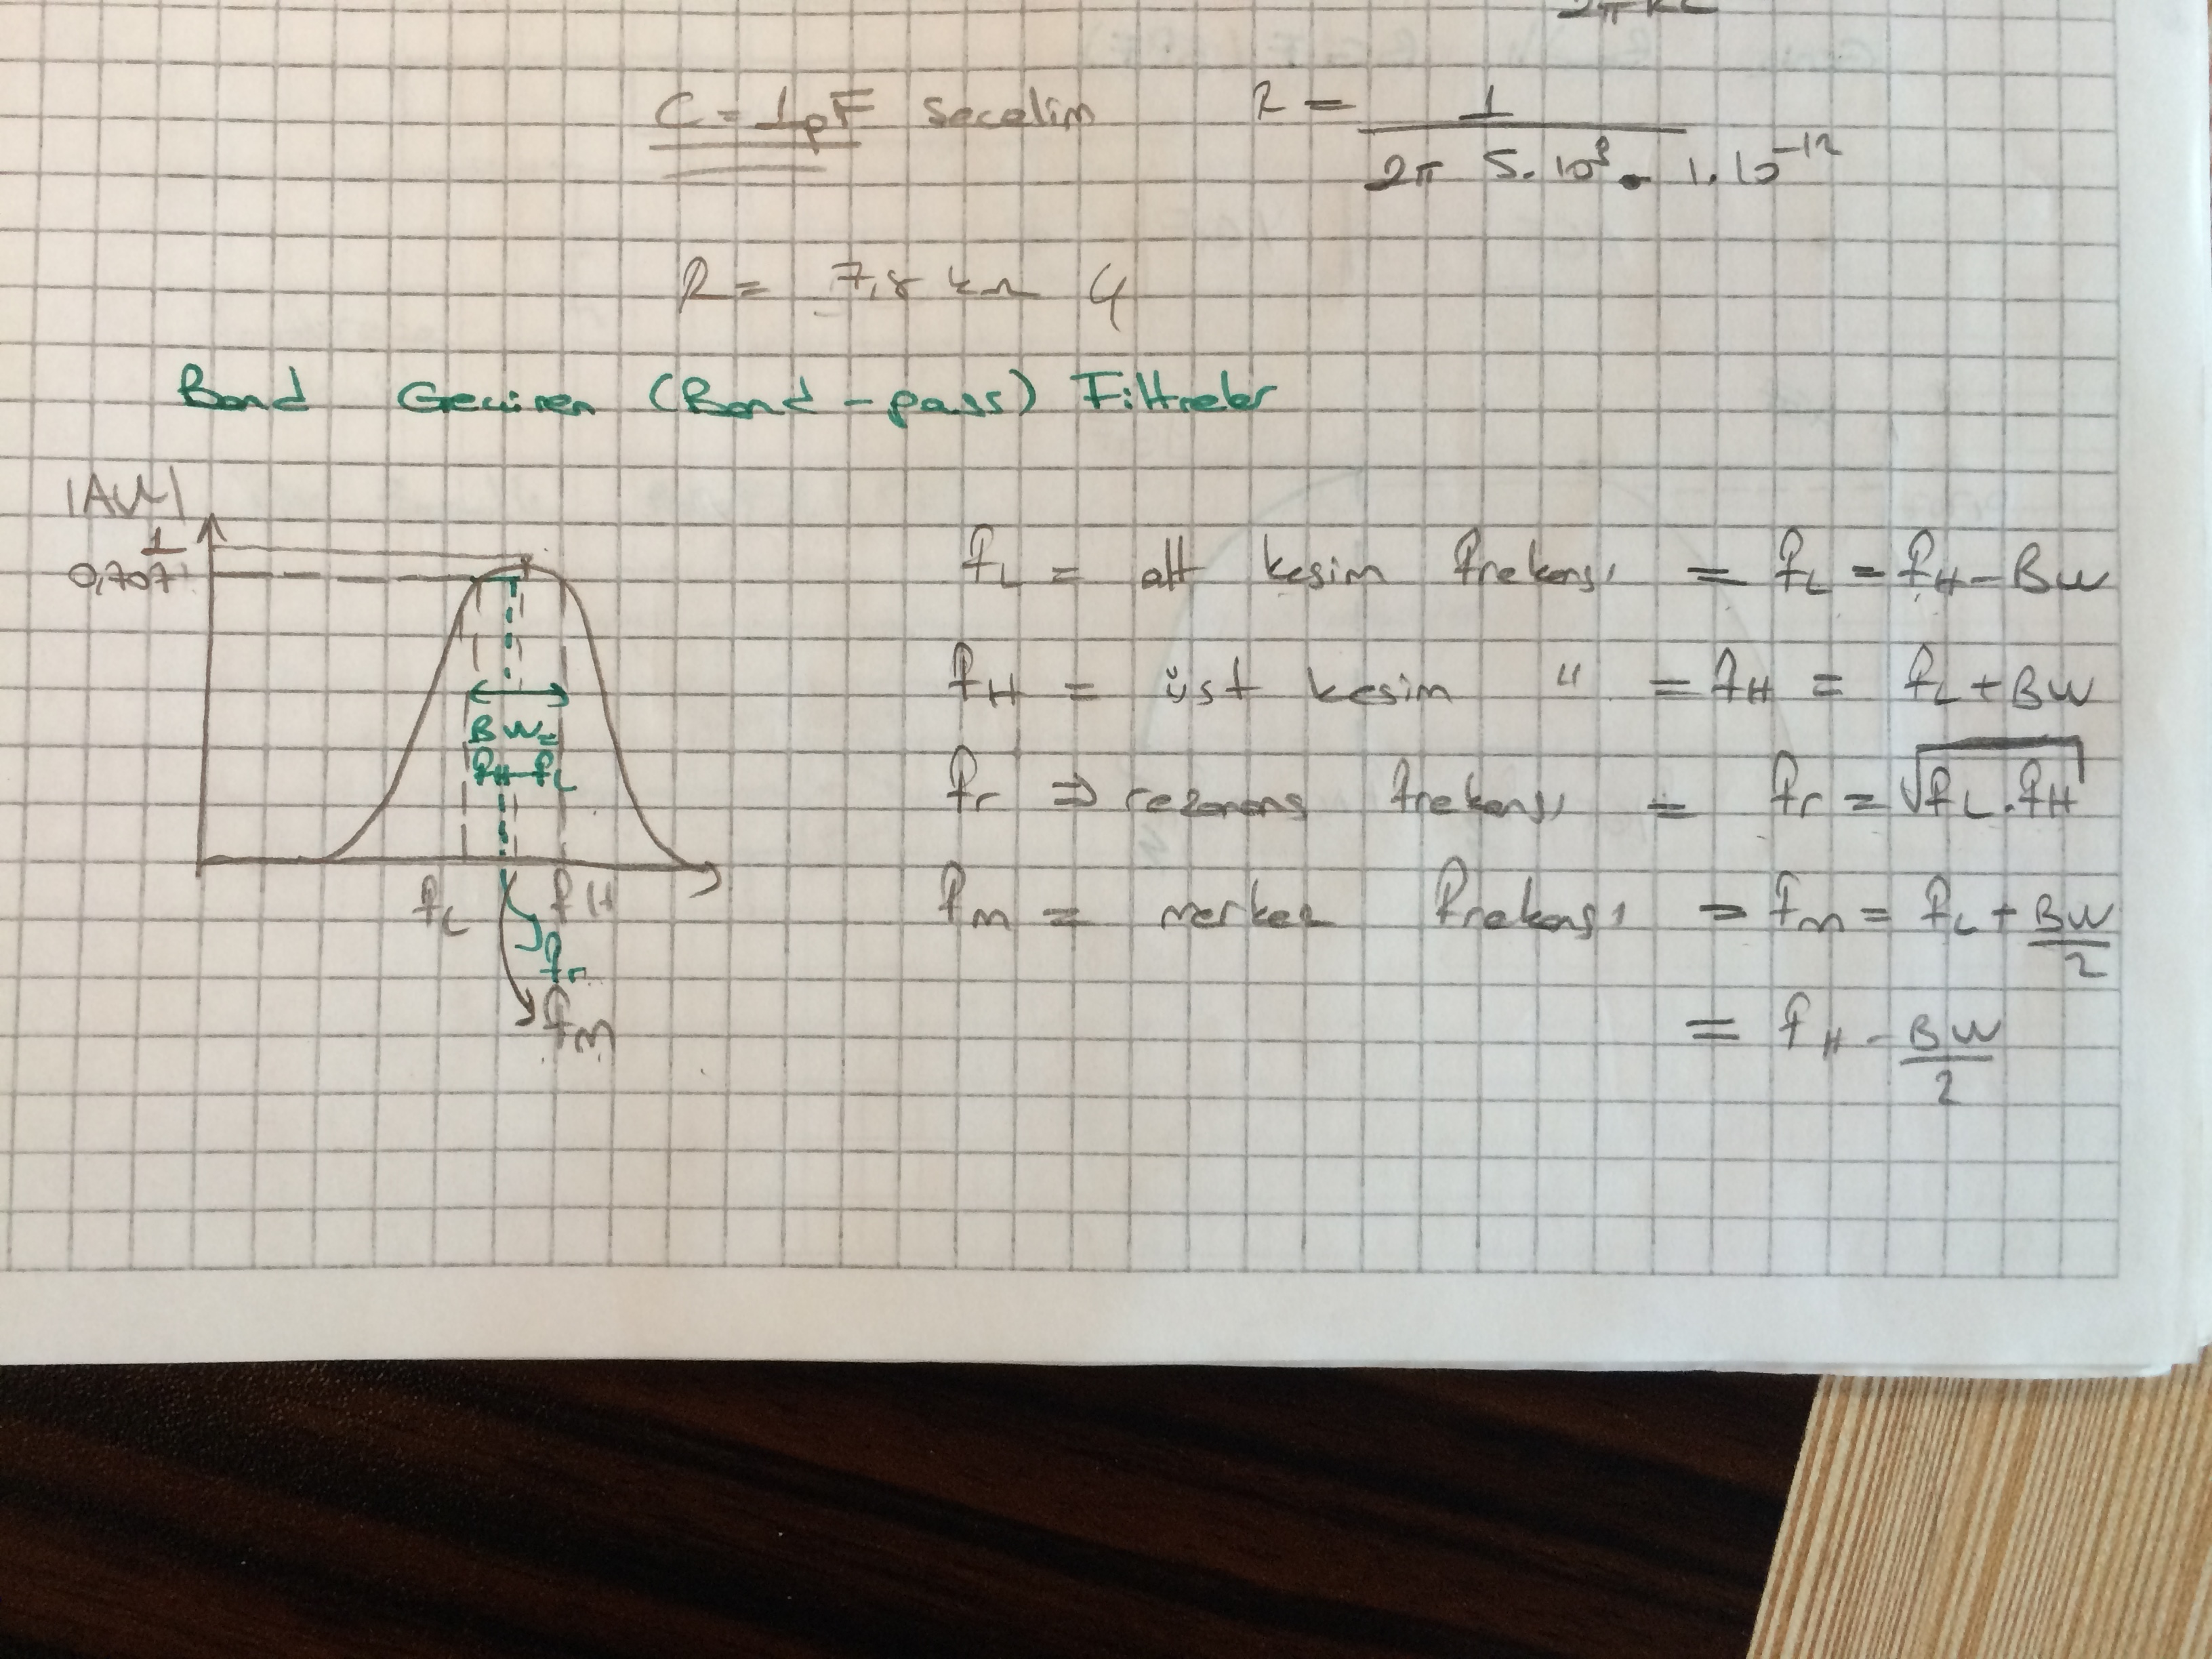 2πRC
C = 1pF secelim R = 1 / 2π 5.10³ . 1.10⁻¹²
R = 7,8 kΩ
Band Geciren (Band-pass) Filtreler
|AV|
1
0,707
fL = alt kesim frekansı = fL = fH - BW
fH = üst kesim " = fH = fL + BW
BW =
fH - fL
fr ⇒ rezonans frekansı = fr = √fL.fH
fL fH
fm = merkez frekansı = fm = fL + BW/2
fr
fm
= fH - BW/2